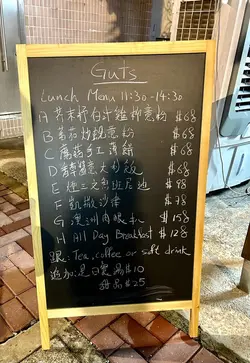 Guts
Lunch Menu 11:30-14:30
A 白汁雞柳意粉 $68
B 蕃茄炒 意粉 $68
C 蘑菇 薄餅 $68
D 意大利飯 $68
E 煙三文 班尼迪 $98
F 凱撒沙律 $78
G 澳洲肉眼扒 $158
H All Day Breakfast $128
跟: Tea, coffee or soft drink
追加: 是日 $10
甜品 $25